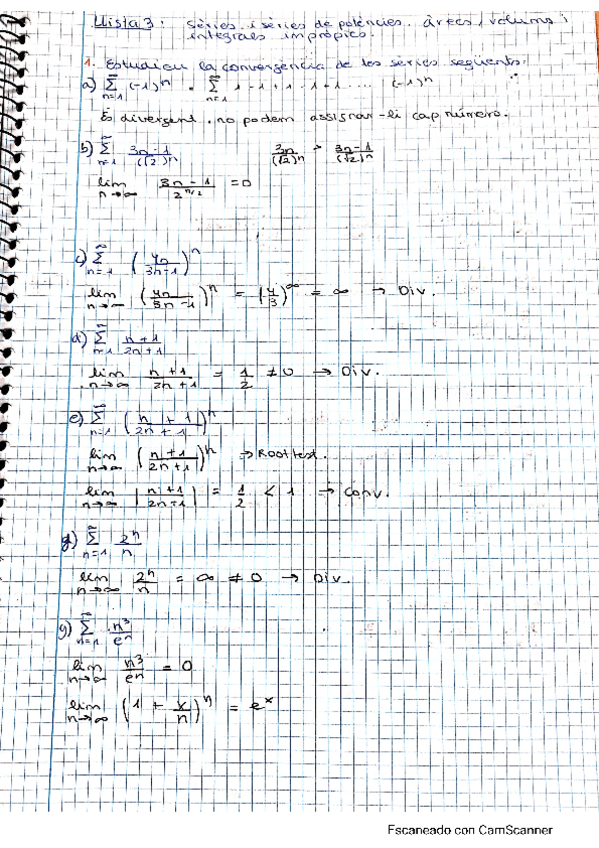 Llista 3: Sèries i sèries de potències. àrees, volums i
integrals impròpies.
1. Estudieu la convergència de les sèries següents:
a) ∑_{n=1}^∞ (-1)^n = ∑_{n=1}^∞ 1 - 1 + 1 - 1 + 1 .... (-1)^n
És divergent, no podem assignar-li cap número.
b) ∑_{n=1}^∞ (3n-1)/(√2)^n 3n/(√2)^n > (3n-1)/(√2)^n
lim_{n→∞} (3n-1)/2^{n/2} = 0
c) ∑_{n=1}^∞ (4n/(3n-1))^n
lim_{n→∞} (4n/(3n-1))^n = (4/3)^∞ = ∞ → Div.
d) ∑_{n=1}^∞ (n+1)/(2n+1)
lim_{n→∞} (n+1)/(2n+1) = 1/2 ≠ 0 → Div.
e) ∑_{n=1}^∞ ((n+1)/(2n+1))^n
lim_{n→∞} ((n+1)/(2n+1))^n → Root test.
lim_{n→∞} |(n+1)/(2n+1)| = 1/2 < 1 → Conv.
∑_{n=1}^∞ 2^n/n
lim_{n→∞} 2^n/n = ∞ ≠ 0 → Div.
g) ∑_{n=1}^∞ n^3/e^n
lim_{n→∞} n^3/e^n = 0
lim_{n→∞} (1 + x/n)^n = e^x
Escaneado con CamScanner